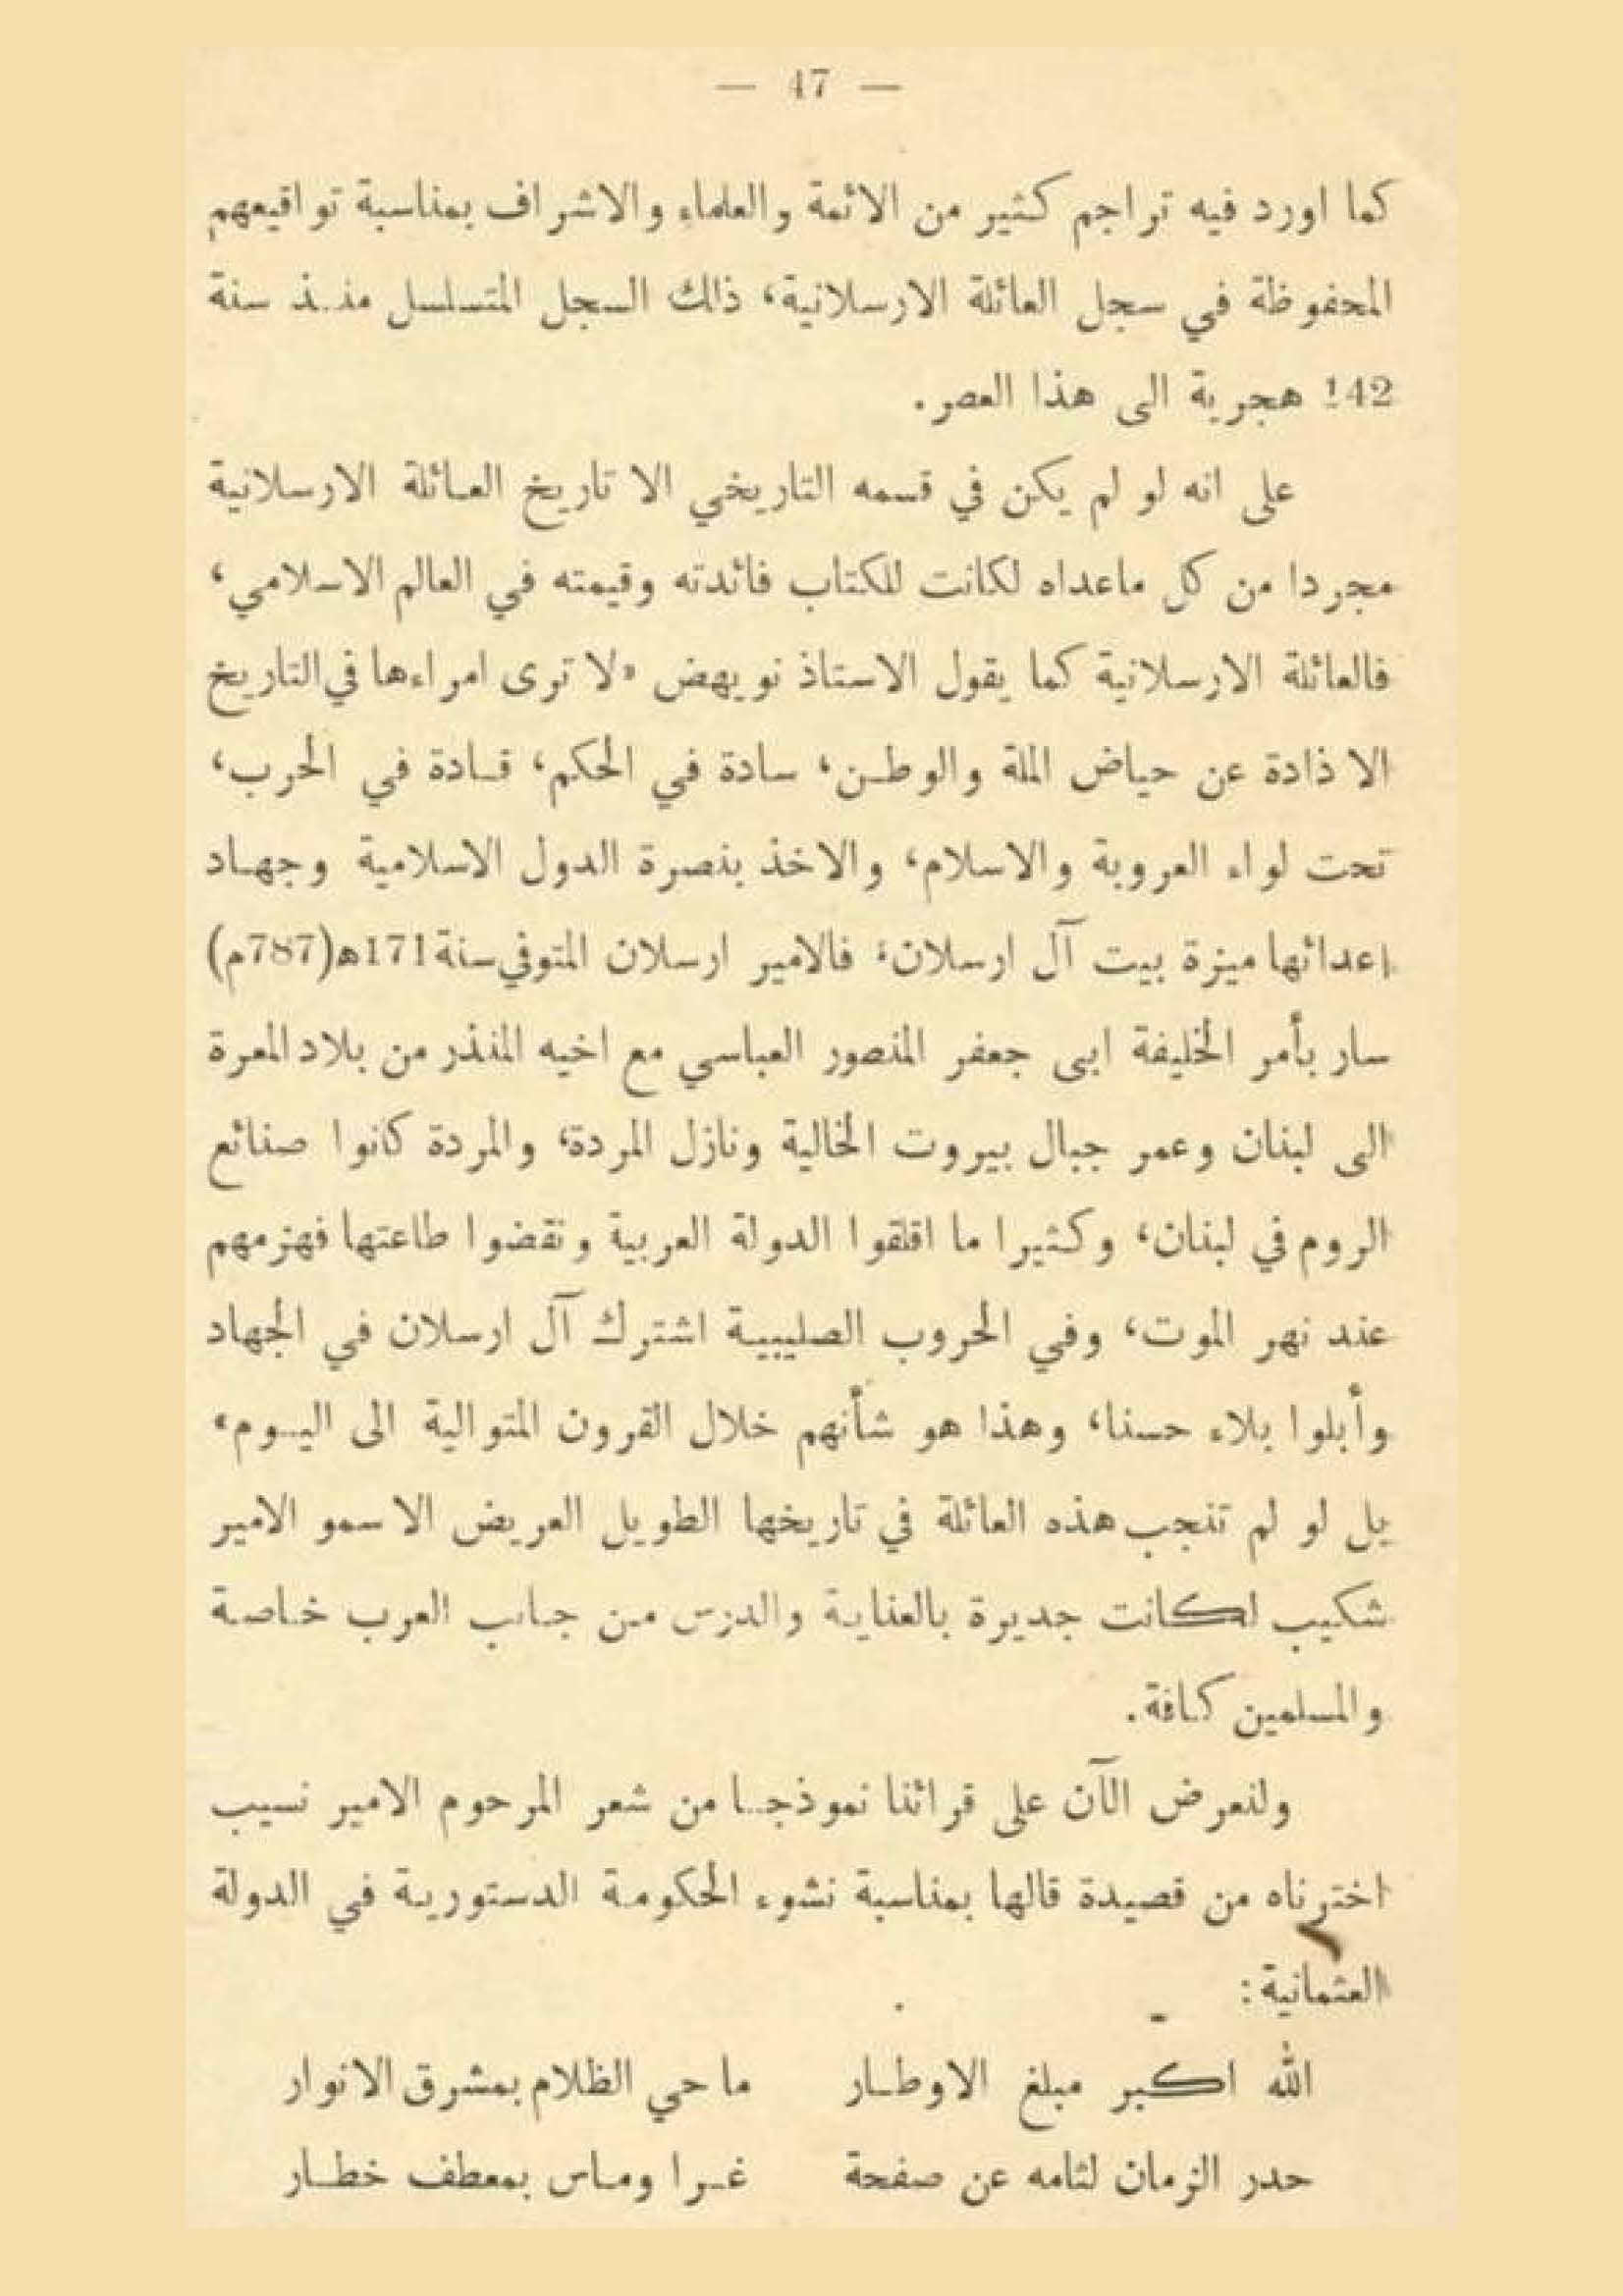 — 47 —
كما اورد فيه تراجم كثير من الائمة والعلماء والاشراف بمناسبة تواقيعهم
المحفوظة في سجل العائلة الارسلانية، ذالك السجل المتسلسل منذ سنة
142 هجرية الى هذا العصر.
على انه لو لم يكن في قسمه التاريخي الا تاريخ العائلة الارسلانية
مجردا من كل ماعداه لكانت للكتاب فائدته وقيمته في العالم الاسلامي،
فالعائلة الارسلانية كما يقول الاستاذ نويهض «لا ترى امراءها في التاريخ
الا ذادة عن حياض الملة والوطن، سادة في الحكم، قادة في الحرب،
تحت لواء العروبة والاسلام، والاخذ بنصرة الدول الاسلامية وجهاد
اعدائها ميزة بيت آل ارسلان: فالامير ارسلان المتوفي سنة 171ه (787م)
سار بأمر الخليفة ابى جعفر المنصور العباسي مع اخيه المنذر من بلاد المعرة
الى لبنان وعمر جبال بيروت الخالية ونازل المردة، والمردة كانوا صنائع
الروم في لبنان، وكثيرا ما اقلقوا الدولة العربية ونقضوا طاعتها فهزمهم
عند نهر الموت، وفي الحروب الصليبية اشترك آل ارسلان في الجهاد
وأبلوا بلاء حسنا، وهذا هو شأنهم خلال القرون المتوالية الى اليوم»
بل لو لم تنجب هذه العائلة في تاريخها الطويل العريض الا سمو الامير
شكيب لكانت جديرة بالعناية والدرس من جانب العرب خاصة
والمسلمين كافة.
ولنعرض الآن على قرائنا نموذجا من شعر المرحوم الامير نسيب
اخترناه من قصيدة قالها بمناسبة نشوء الحكومة الدستورية في الدولة
العثمانية:
الله اكبر مبلغ الاوطار ماحي الظلام بمشرق الانوار
حدر الزمان لثامه عن صفحة غرا وماس بمعطف خطار